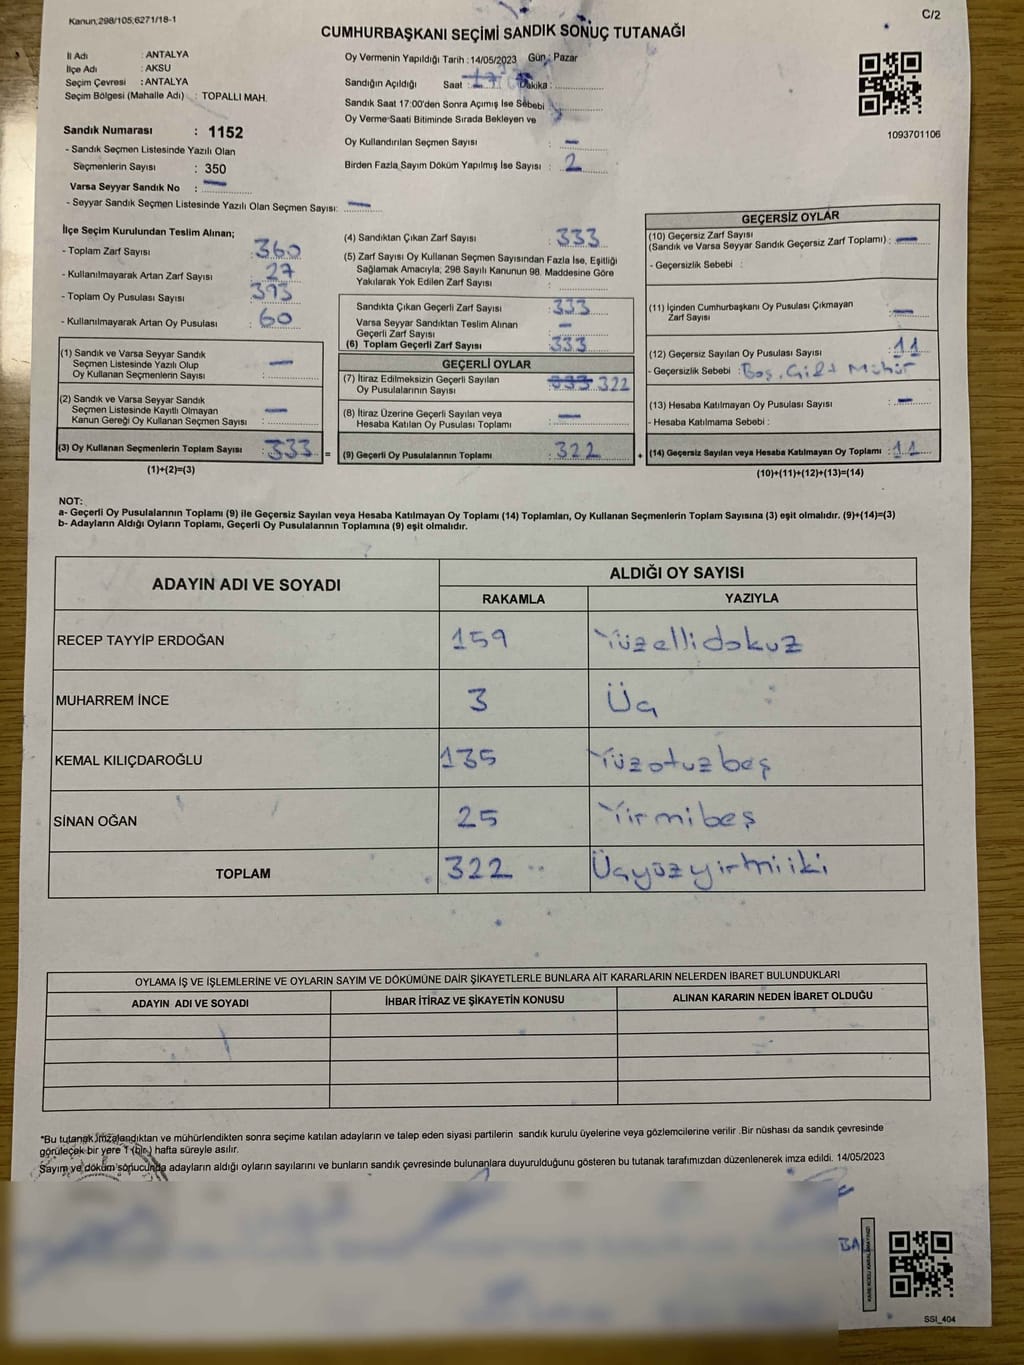 Kanun,298/105;6271/18-1
C/2
CUMHURBAŞKANI SEÇİMİ SANDIK SONUÇ TUTANAĞI
İl Adı : ANTALYA
İlçe Adı : AKSU
Seçim Çevresi : ANTALYA
Seçim Bölgesi (Mahalle Adı) : TOPALLI MAH.
Oy Vermenin Yapıldığı Tarih : 14/05/2023 Gün : Pazar
Sandığın Açıldığı Saat : 17 Dakika :
Sandık Saat 17:00'den Sonra Açımış İse Sebebi
Oy Verme Saati Bitiminde Sırada Bekleyen ve
Oy Kullandırılan Seçmen Sayısı : —
Birden Fazla Sayım Döküm Yapılmış İse Sayısı : 2
1093701106
Sandık Numarası : 1152
- Sandık Seçmen Listesinde Yazılı Olan
Seçmenlerin Sayısı : 350
Varsa Seyyar Sandık No : —
- Seyyar Sandık Seçmen Listesinde Yazılı Olan Seçmen Sayısı: —
İlçe Seçim Kurulundan Teslim Alınan;
- Toplam Zarf Sayısı : 360
- Kullanılmayarak Artan Zarf Sayısı : 27
- Toplam Oy Pusulası Sayısı : 393
- Kullanılmayarak Artan Oy Pusulası : 60
(1) Sandık ve Varsa Seyyar Sandık
Seçmen Listesinde Yazılı Olup
Oy Kullanan Seçmenlerin Sayısı : —
(2) Sandık ve Varsa Seyyar Sandık
Seçmen Listesinde Kayıtlı Olmayan
Kanun Gereği Oy Kullanan Seçmen Sayısı : —
(3) Oy Kullanan Seçmenlerin Toplam Sayısı : 333
(1)+(2)=(3)
(4) Sandıktan Çıkan Zarf Sayısı : 333
(5) Zarf Sayısı Oy Kullanan Seçmen Sayısından Fazla İse, Eşitliği
Sağlamak Amacıyla; 298 Sayılı Kanunun 98. Maddesine Göre
Yakılarak Yok Edilen Zarf Sayısı :
Sandıkta Çıkan Geçerli Zarf Sayısı : 333
Varsa Seyyar Sandıktan Teslim Alınan
Geçerli Zarf Sayısı : —
(6) Toplam Geçerli Zarf Sayısı : 333
GEÇERLİ OYLAR
(7) İtiraz Edilmeksizin Geçerli Sayılan
Oy Pusulalarının Sayısı : 333 322
(8) İtiraz Üzerine Geçerli Sayılan veya
Hesaba Katılan Oy Pusulası Toplamı : —
= (9) Geçerli Oy Pusulalarının Toplamı : 322
GEÇERSİZ OYLAR
(10) Geçersiz Zarf Sayısı
(Sandık ve Varsa Seyyar Sandık Geçersiz Zarf Toplamı) : —
- Geçersizlik Sebebi :
(11) İçinden Cumhurbaşkanı Oy Pusulası Çıkmayan
Zarf Sayısı : —
(12) Geçersiz Sayılan Oy Pusulası Sayısı : 11
- Geçersizlik Sebebi : Boş, Çift Mühür
(13) Hesaba Katılmayan Oy Pusulası Sayısı : —
- Hesaba Katılmama Sebebi :
+ (14) Geçersiz Sayılan veya Hesaba Katılmayan Oy Toplamı : 11
(10)+(11)+(12)+(13)=(14)
NOT:
a- Geçerli Oy Pusulalarının Toplamı (9) ile Geçersiz Sayılan veya Hesaba Katılmayan Oy Toplamı (14) Toplamları, Oy Kullanan Seçmenlerin Toplam Sayısına (3) eşit olmalıdır. (9)+(14)=(3)
b- Adayların Aldığı Oyların Toplamı, Geçerli Oy Pusulalarının Toplamına (9) eşit olmalıdır.
ADAYIN ADI VE SOYADI
ALDIĞI OY SAYISI
RAKAMLA YAZIYLA
RECEP TAYYİP ERDOĞAN 159 Yüzellidokuz
MUHARREM İNCE 3 Üç
KEMAL KILIÇDAROĞLU 135 Yüzotuzbeş
SİNAN OĞAN 25 Yirmibeş
TOPLAM 322 Üçyüzyirmiiki
OYLAMA İŞ VE İŞLEMLERİNE VE OYLARIN SAYIM VE DÖKÜMÜNE DAİR ŞİKAYETLERLE BUNLARA AİT KARARLARIN NELERDEN İBARET BULUNDUKLARI
ADAYIN ADI VE SOYADI İHBAR İTİRAZ VE ŞİKAYETİN KONUSU ALINAN KARARIN NEDEN İBARET OLDUĞU
*Bu tutanak,imzalandıktan ve mühürlendikten sonra seçime katılan adayların ve talep eden siyasi partilerin sandık kurulu üyelerine veya gözlemcilerine verilir .Bir nüshası da sandık çevresinde
görülecek bir yere 1 (bir) hafta süreyle asılır.
Sayım ve döküm sonucunda adayların aldığı oyların sayılarını ve bunların sandık çevresinde bulunanlara duyurulduğunu gösteren bu tutanak tarafımızdan düzenlenerek imza edildi. 14/05/2023
BA
SSI_404